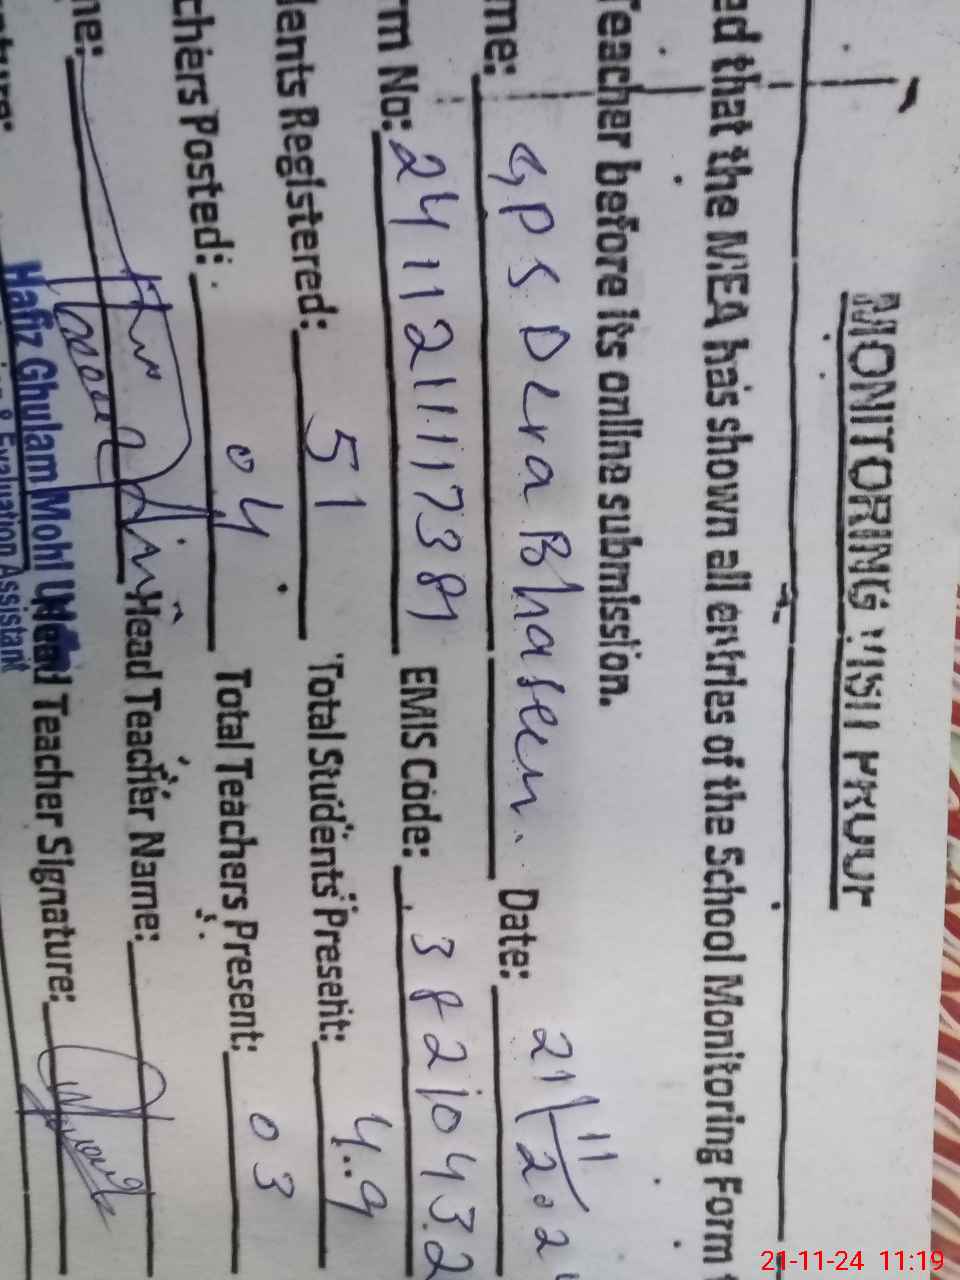 MONITORING VISIT PROOF
ed that the MEA has shown all entries of the School Monitoring Form
Teacher before its online submission.
me: GPS Dera Bhaseen. Date: 21/11/202
rm No: EMIS Code: 38210432
dents Registered: 51 Total Students Present: 49
chers Posted: 04 Total Teachers Present: 03
me: Head Teacher Name:
Hafiz Ghulam Mohi
Head Teacher Signature:
Evaluation Assistant
21-11-24 11:19